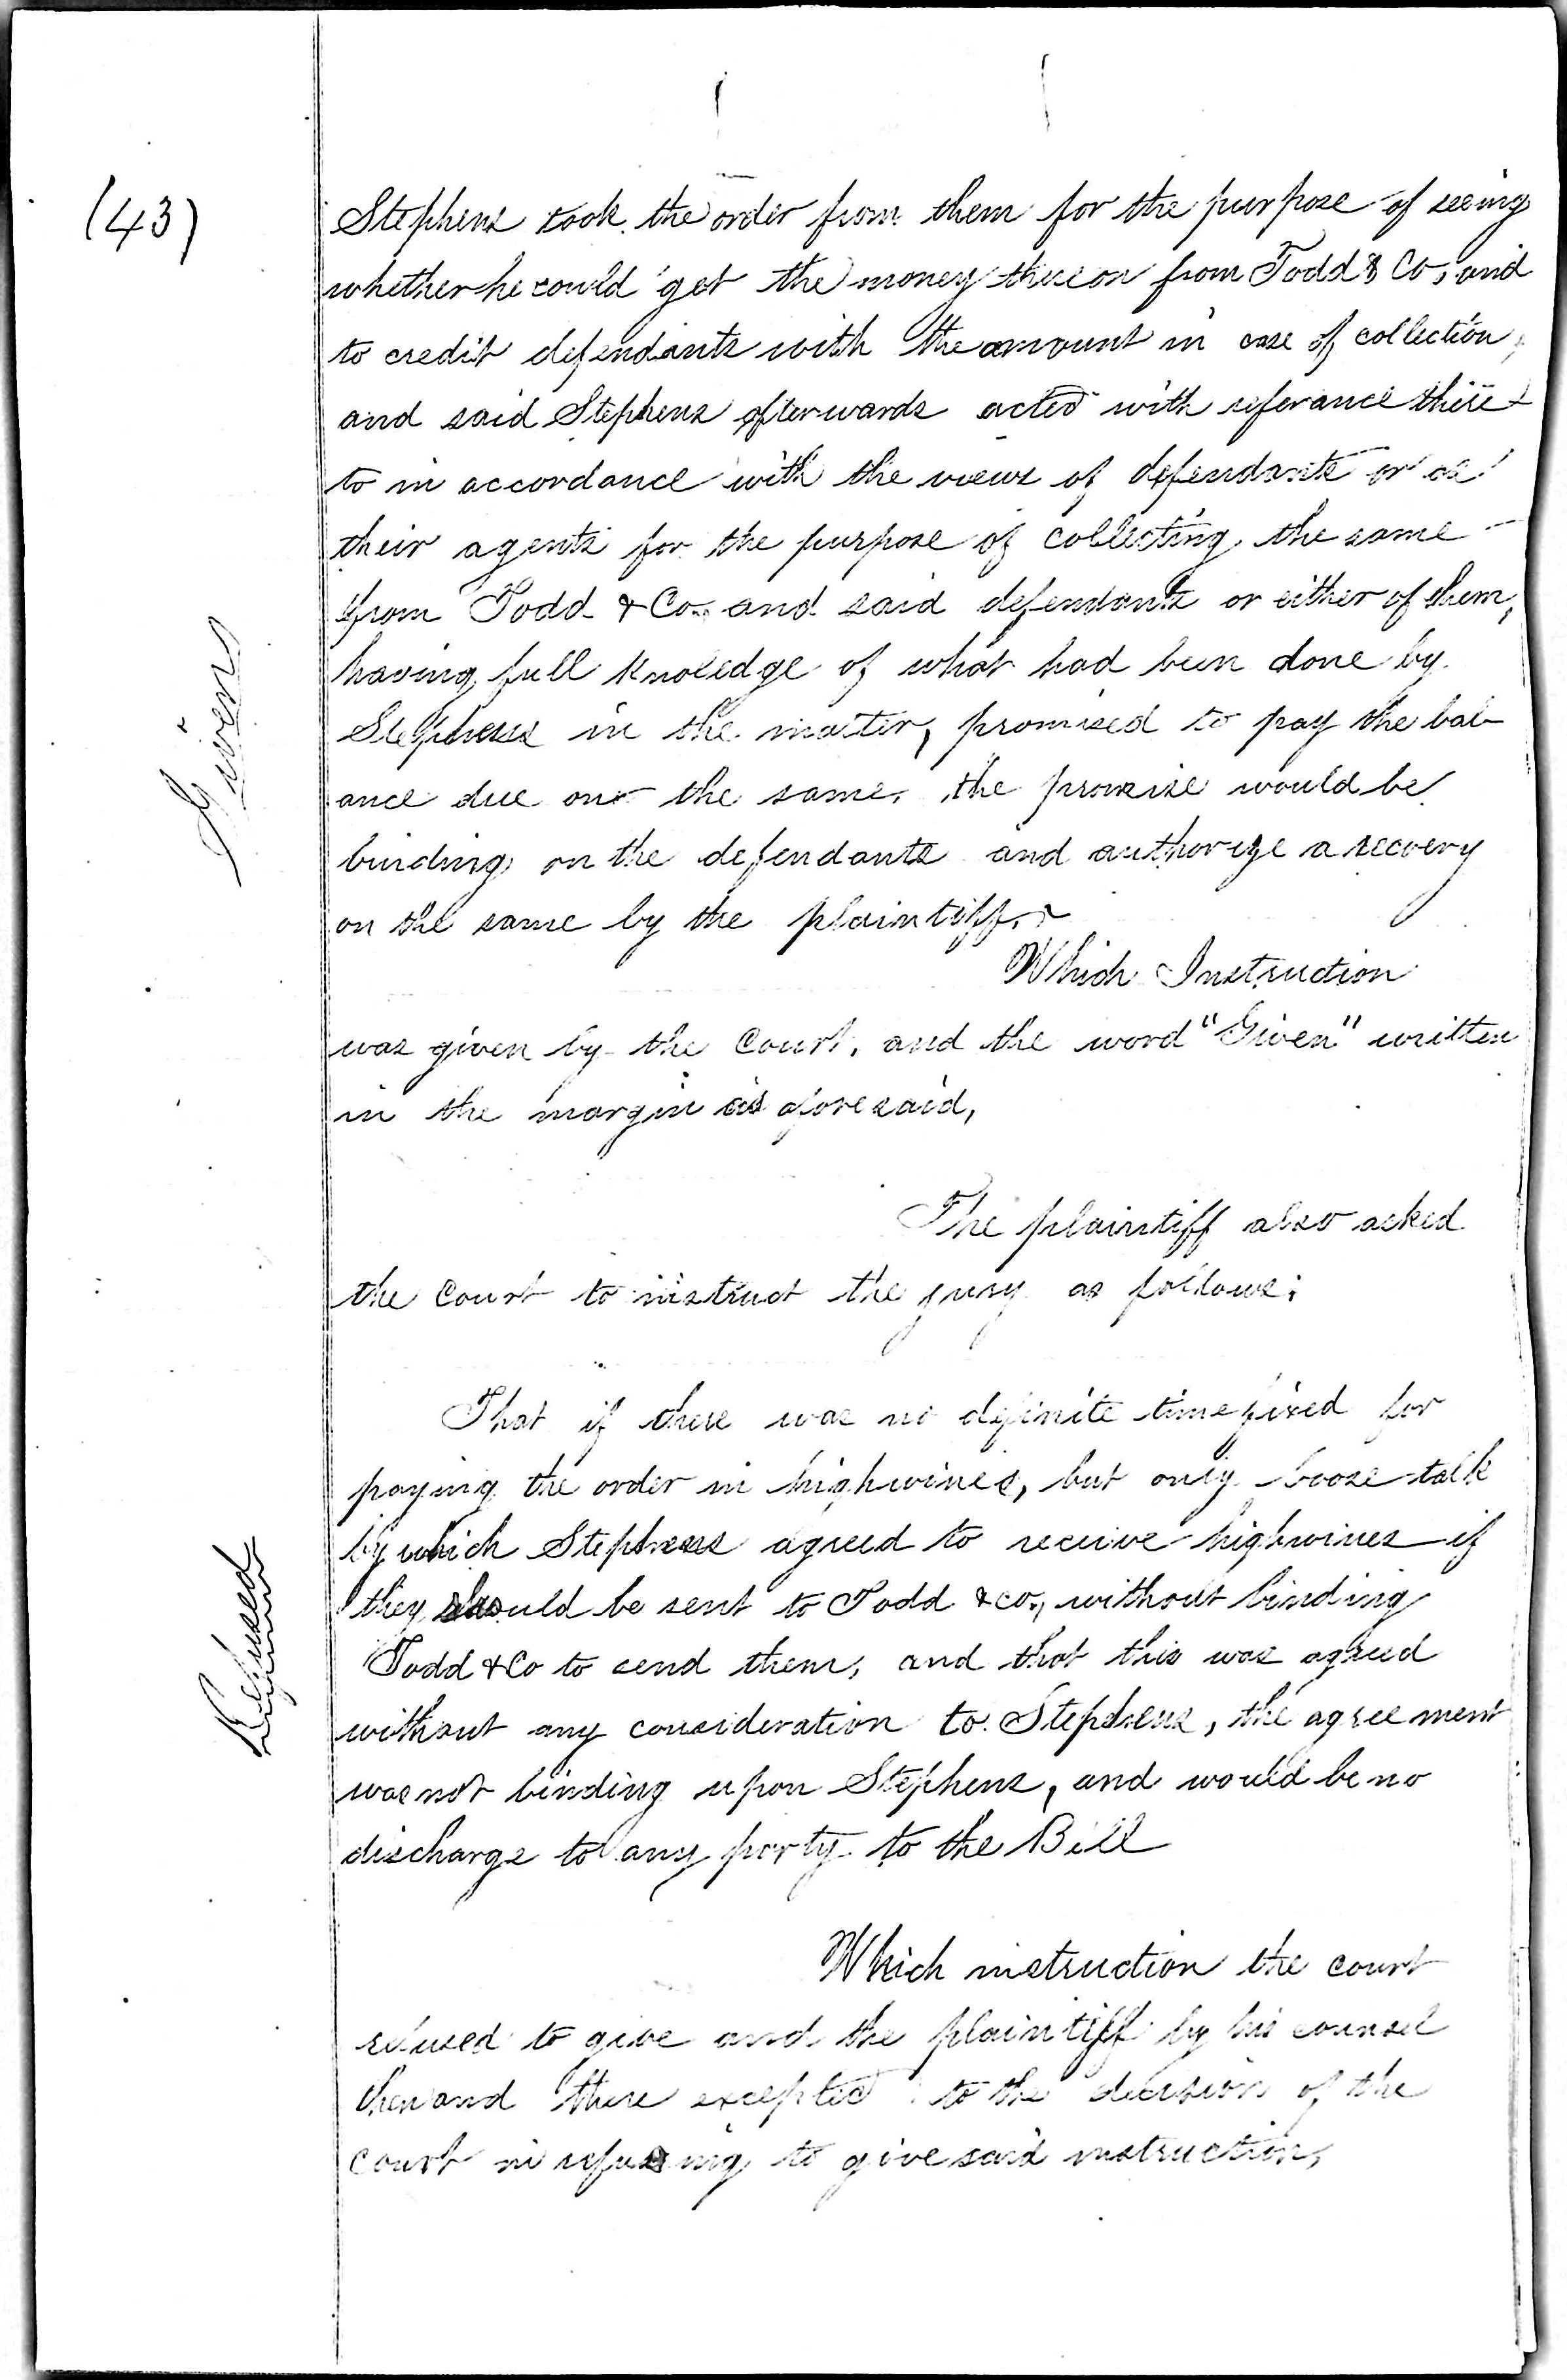 (43)
Stephens took the order from them for the purpose of seeing
whether he could get the money thereon from Todd & Co, and
to credit defendants with the amount in case of collection,
and said Stephens afterwards acted with referance there-
to in accordance with the views of defendants or as
their agents for the purpose of collecting the same
from Todd & Co. and said defendants or either of them,
having full knoledge of what had been done by
Stephens in the matter, promised to pay the bal-
ance due on the same, the promise would be
binding on the defendants and authorize a recovery
on the same by the plaintiff.
Given
Which Instruction
was given by the Court, and the word "Given" written
in the margin as aforesaid,
The plaintiff also asked
the Court to instruct the jury as follows:
That if there was no definite time fixed for
paying the order in highwines, but only loose talk
by which Stephens agreed to receive highwines if
they should be sent to Todd & co., without binding
Todd & Co to send them, and that this was agreed
without any consideration to Stephens, the agreement
was not binding upon Stephens, and would be no
discharge to any party to the Bill
Refused
Which instruction the court
refused to give and the plaintiff by his counsel
then and there excepted to the decision of the
court in refusing to give said instruction,